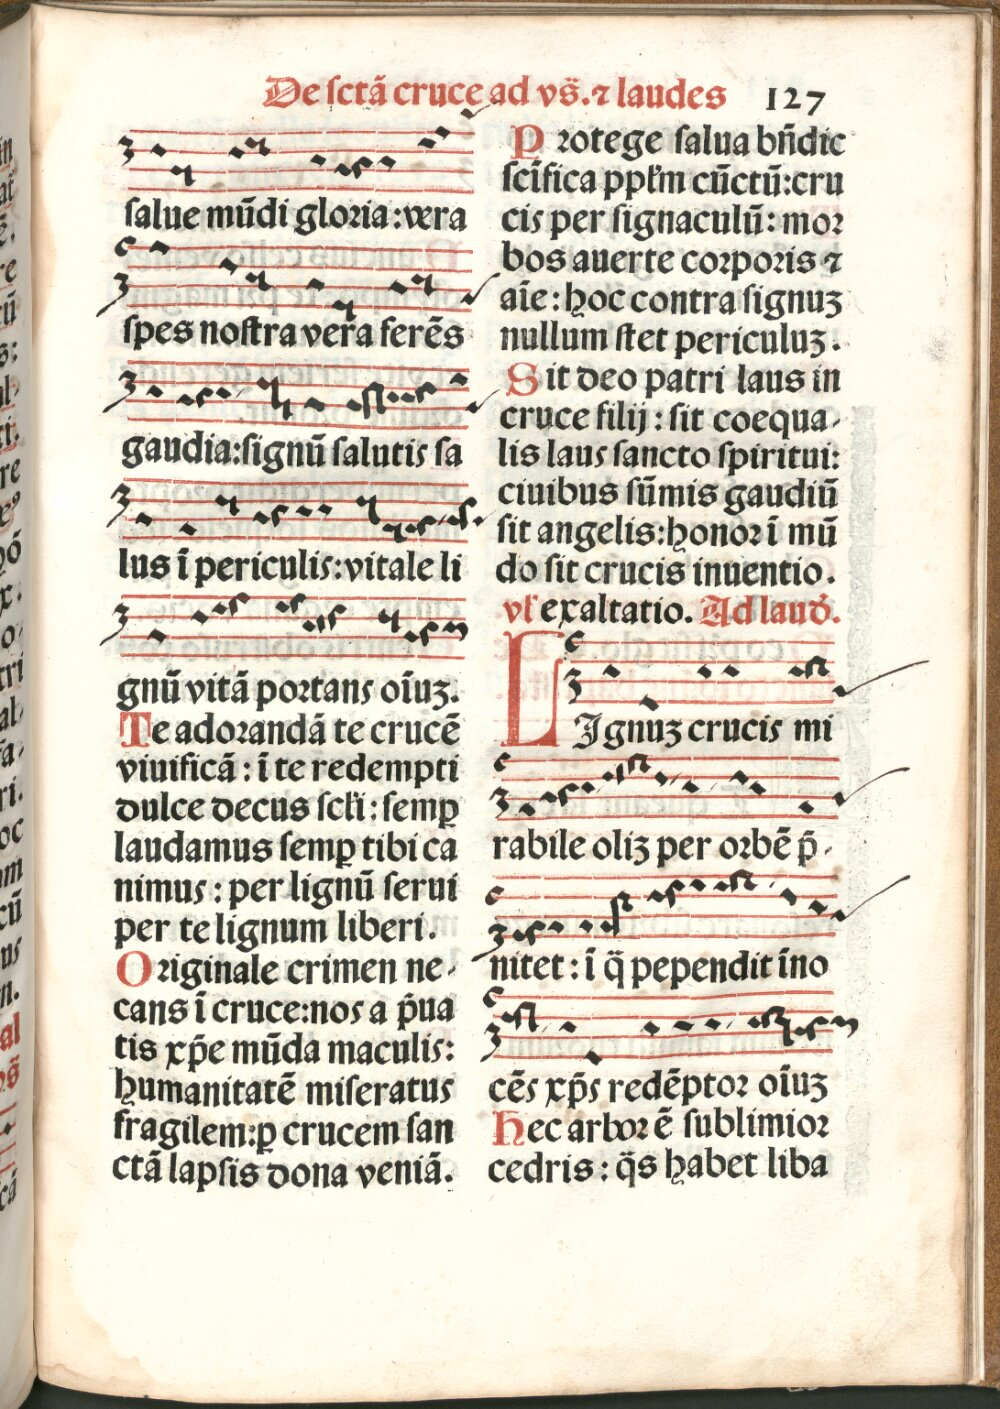 De sctã cruce ad vs̃. ⁊ laudes 127
salue mũdi gloria:vera
spes nostra vera ferẽs
gaudia:signũ salutis sa
lus ĩ periculis:vitale li
gnũ vitã portans oĩuʒ.
Te adorandã te crucẽ
viuificã : ĩ te redempti
dulce decus scłi : semꝑ
laudamus semꝑ tibi ca
nimus : per lignũ serui
per te lignum liberi.
Originale crimen ne-
cans ĩ cruce:nos a p̃ua
tis xp̃e mũda maculis:
humanitatẽ miseratus
fragilem:ꝑ crucem san
ctã lapsis dona veniã.
Protege salua bñdic
scĩfica pplm̃ cũctũ:cru
cis per signaculũ: mor
bos auerte corporis ⁊
aĩe : hoc contra signuʒ
nullum stet periculuʒ.
Sit deo patri laus in
cruce filij : sit coequa-
lis laus sancto spiritui:
ciuibus sũmis gaudiũ
sit angelis:honor ĩ mũ
do sit crucis inuentio.
vł exaltatio. Ad laud̃.
LIgnuʒ crucis mi
rabile oliʒ per orbẽ p̃-
nitet : ĩ q̃ pependit ĩno
cẽs xp̃s redẽptor oĩuʒ
Hec arbor ẽ sublimior
cedris : q̃s habet liba